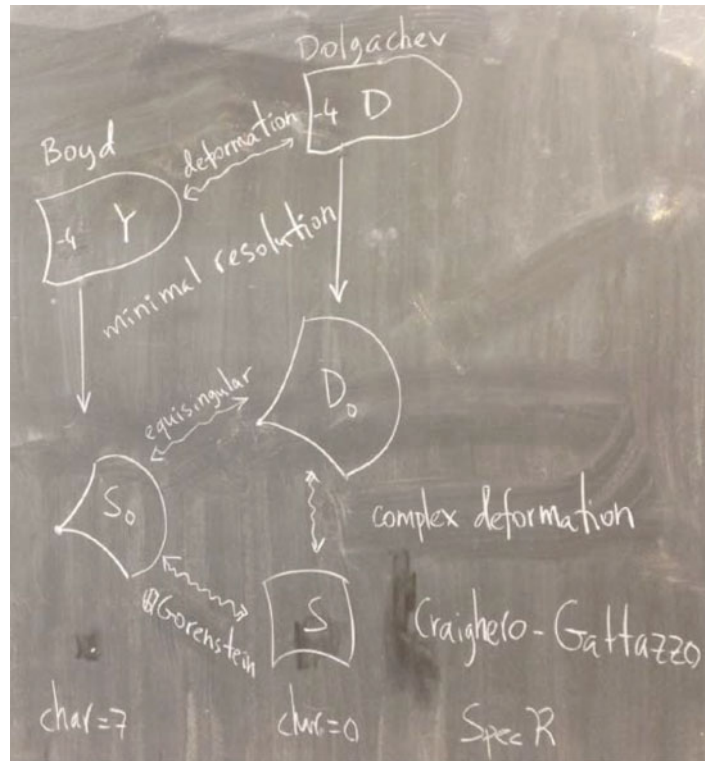 Dolgachev
-4 D
Boyd
deformation
-4 Y
minimal resolution
D₀
equisingular
S₀
complex deformation
Gorenstein
S
Craighero-Gattazzo
char=7
char=0
Spec R